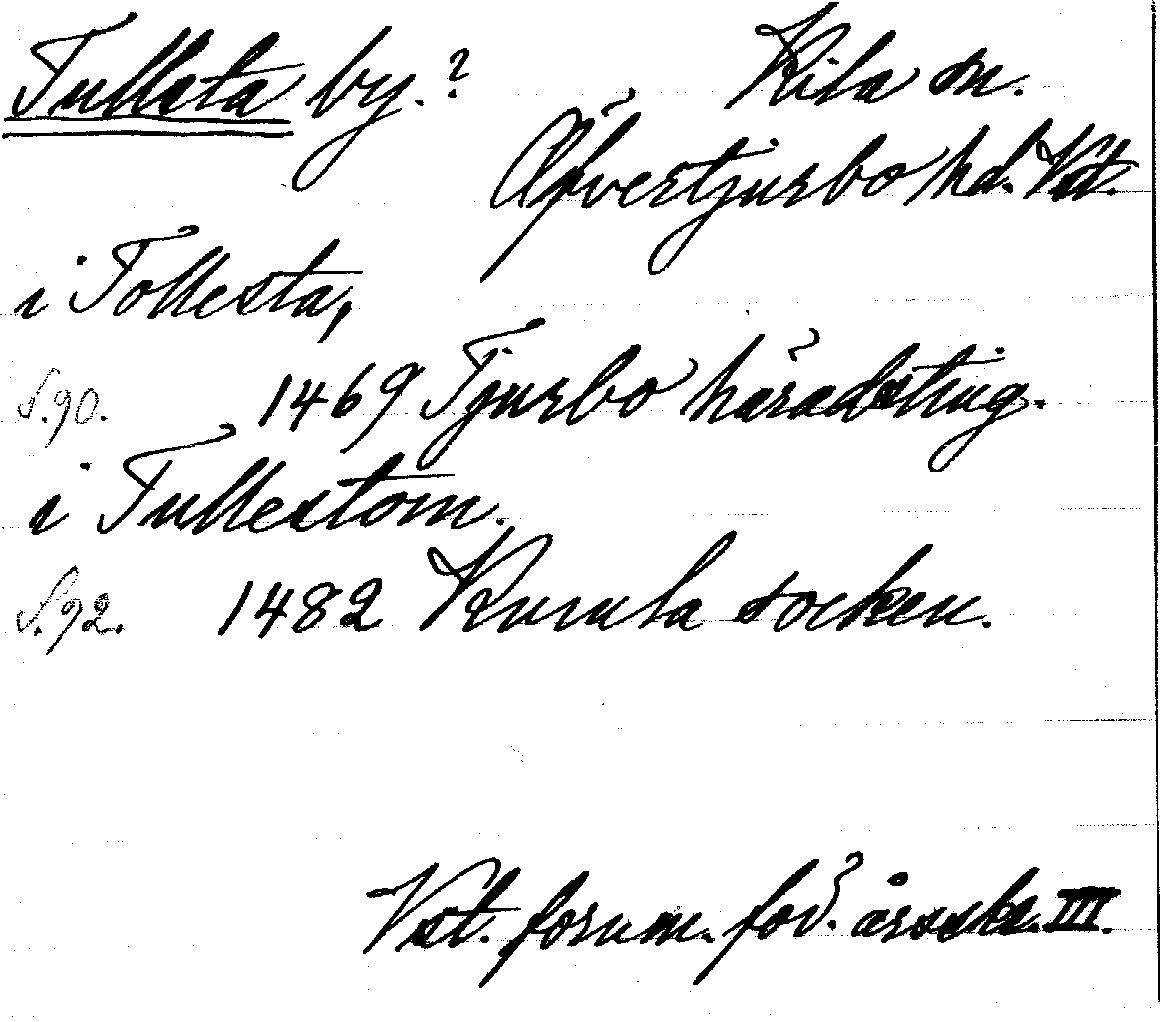 Tullsta by.? Kila sn.
Öfvertjurbo hd. Vstm.
i Tollesta,
S.90. 1469 Tjurbo häradsting.
i Tullestom.
S.92. 1482 Kumla socken.
Vst. fornm. för. årsskr. III.